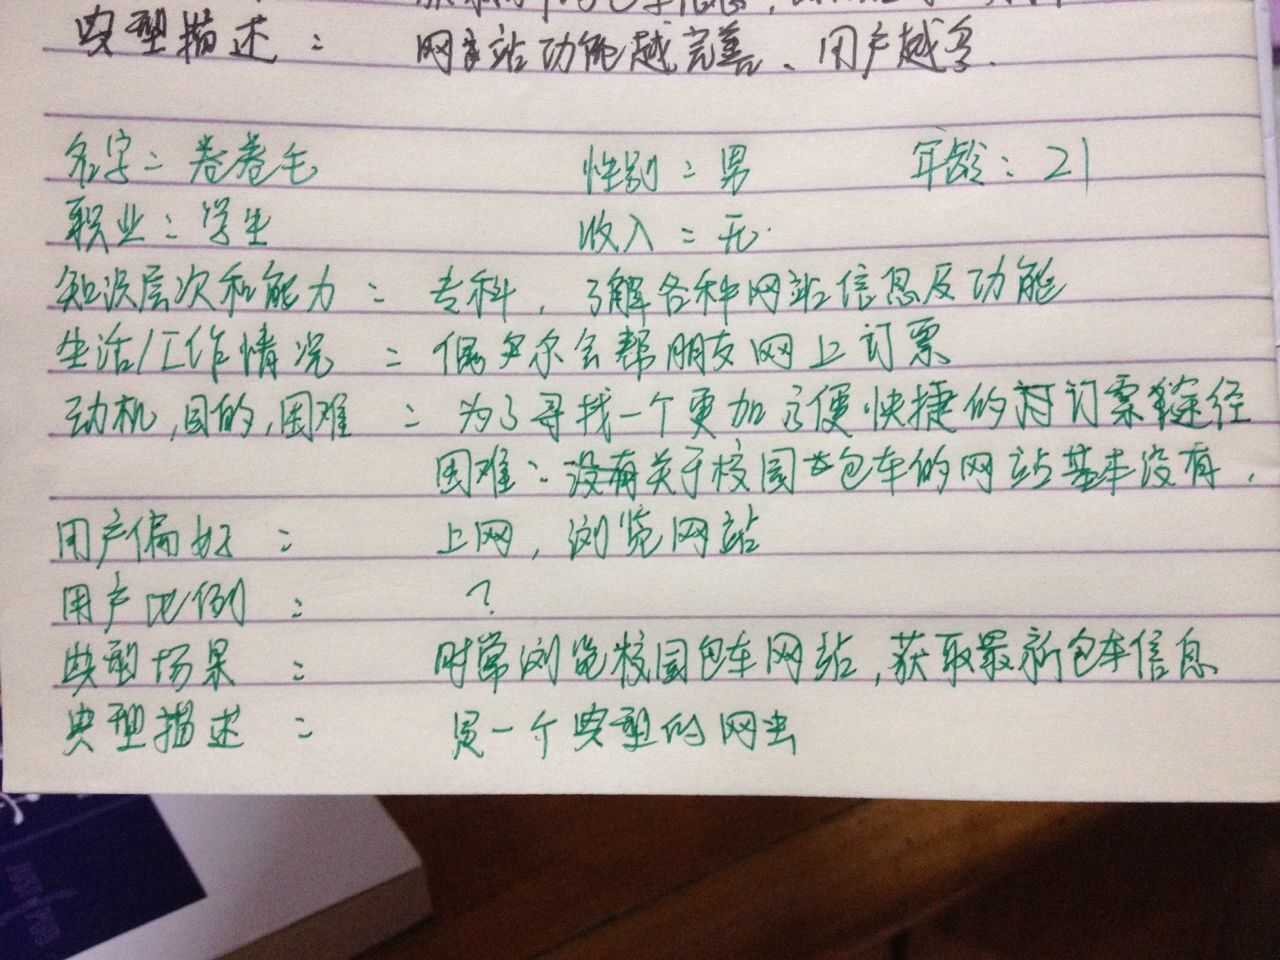 典型描述： 网站功能越完善、用户越多.
名字：卷卷毛 性别：男 年龄：21
职业：学生 收入：无
知识层次和能力： 专科，了解各种网站信息及功能
生活/工作情况： 偶尔会帮朋友网上订票
动机,目的,困难： 为了寻找一个更加方便快捷的订票途径
困难：没有关于校园包车的网站基本没有.
用户偏好： 上网，浏览网站
用户比例： ?
典型场景： 时常浏览校园包车网站,获取最新包车信息
典型描述： 是一个典型的网虫